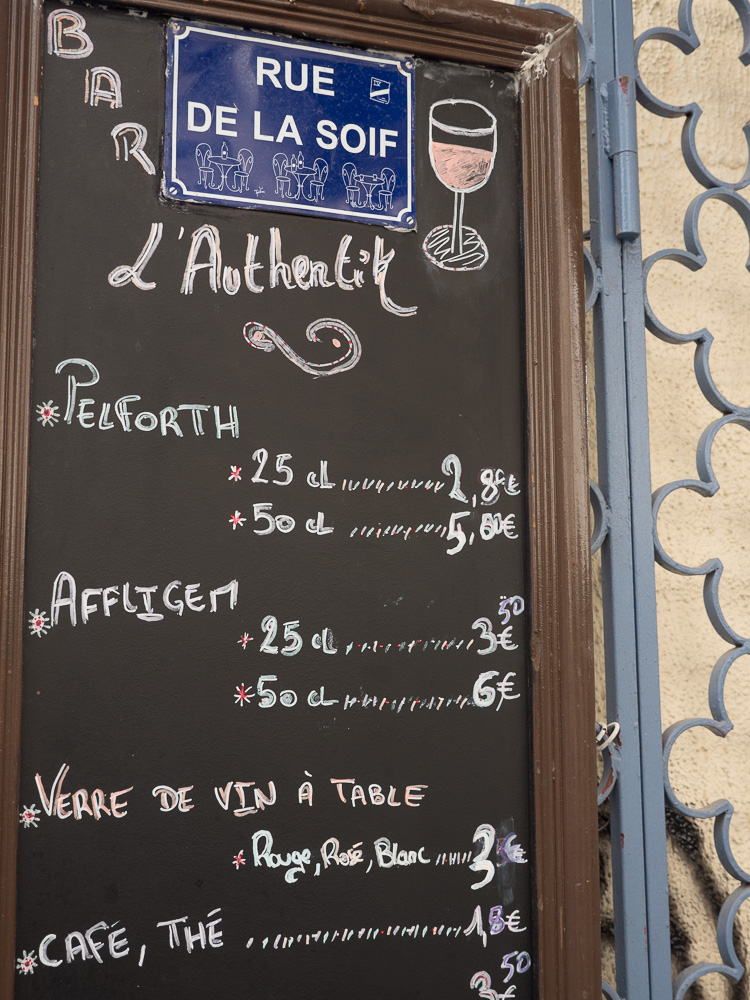 BAR
RUE
DE LA SOIF
L'Authentik
*PELFORTH
*25 cl ........ 2,80€
*50 cl ........ 5,60€
*AFFLIGEM
*25 cl ........ 3€50
*50 cl ........ 6€
*VERRE DE VIN À TABLE
*Rouge, Rosé, Blanc ..... 3€
*CAFÉ, THÉ ........ 1,8€
3€50